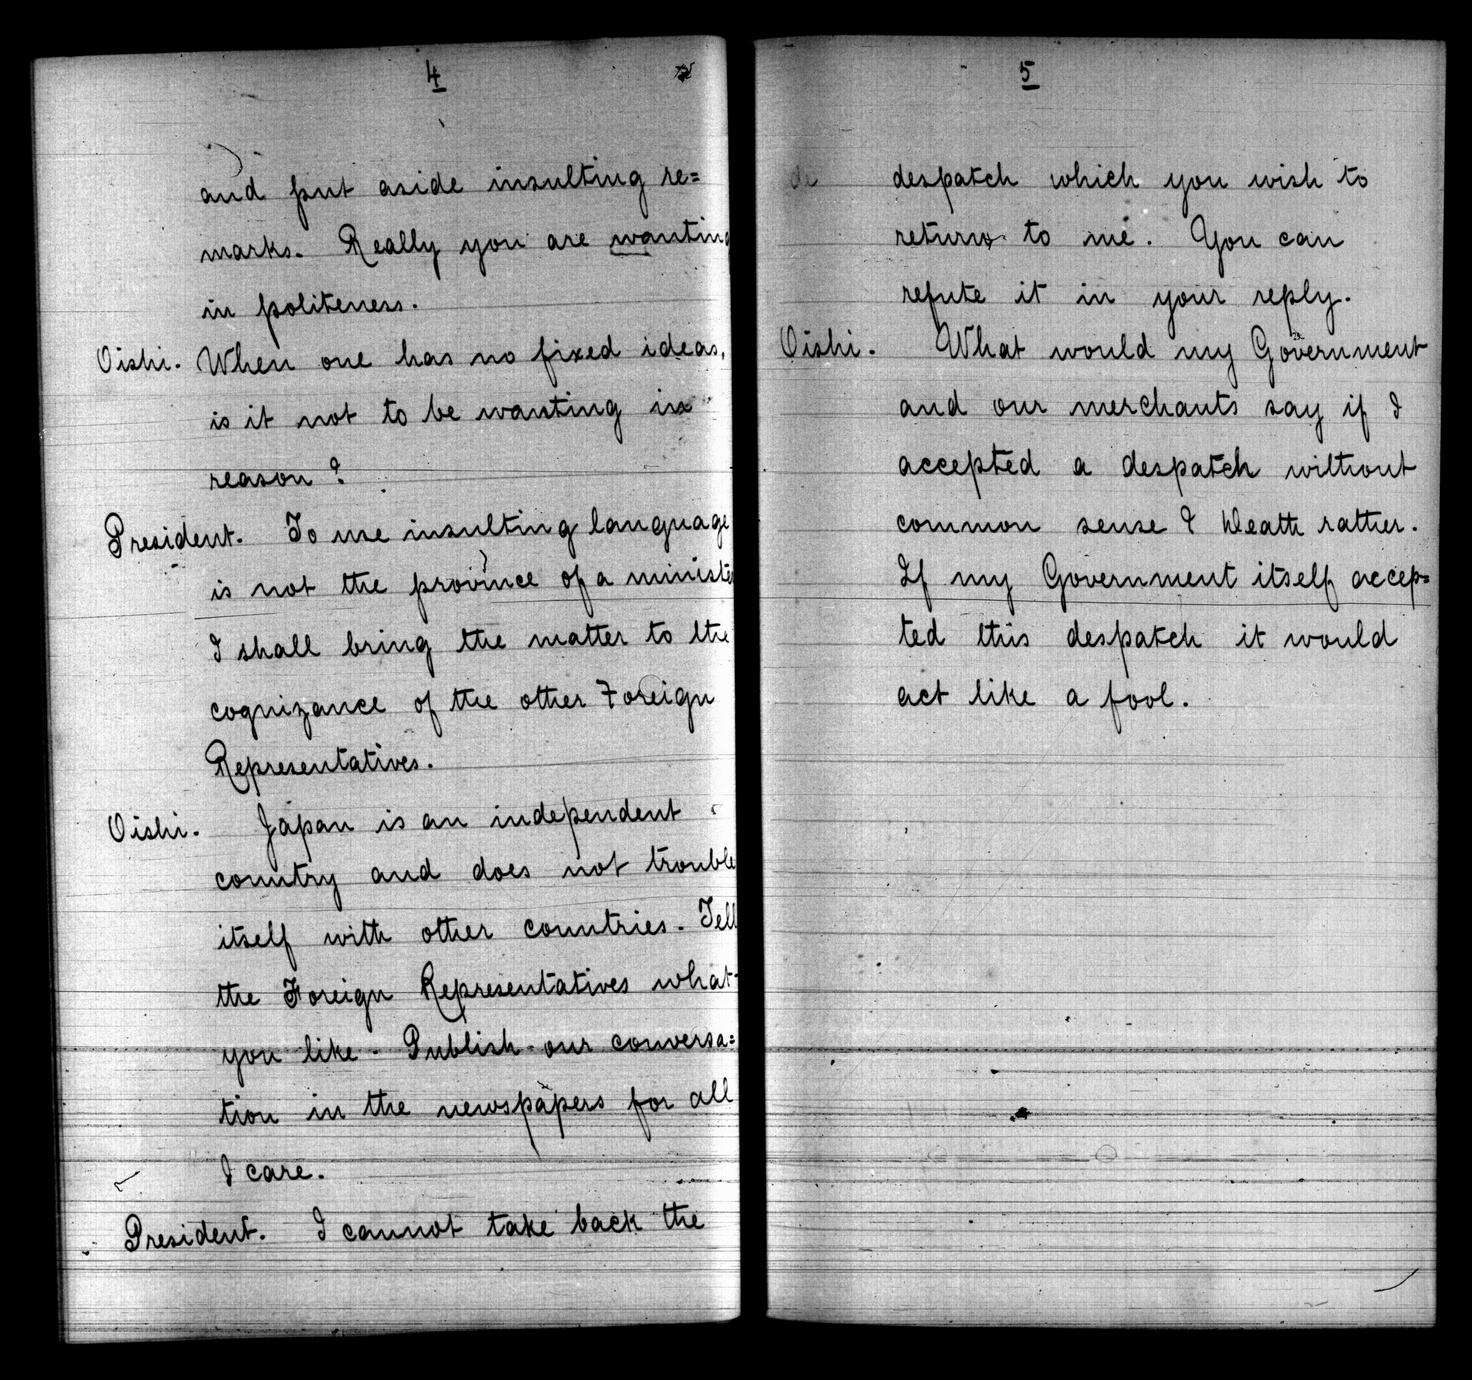 4
and put aside insulting re=
marks. Really you are wanting
in politeness.
Oishi. When one has no fixed ideas,
is it not to be wanting in
reason?
President. To use insulting language
is not the province of a minister
I shall bring the matter to the
cognizance of the other Foreign
Representatives.
Oishi. Japan is an independent
country and does not trouble
itself with other countries. Tell
the Foreign Representatives what
you like - Publish our conversa=
tion in the newspapers for all
I care.
President. I cannot take back the
5
despatch which you wish to
return to me. You can
refute it in your reply.
Oishi. What would my Government
and our merchants say if I
accepted a despatch without
common sense? Death rather.
If my Government itself accep=
ted this despatch it would
act like a fool.